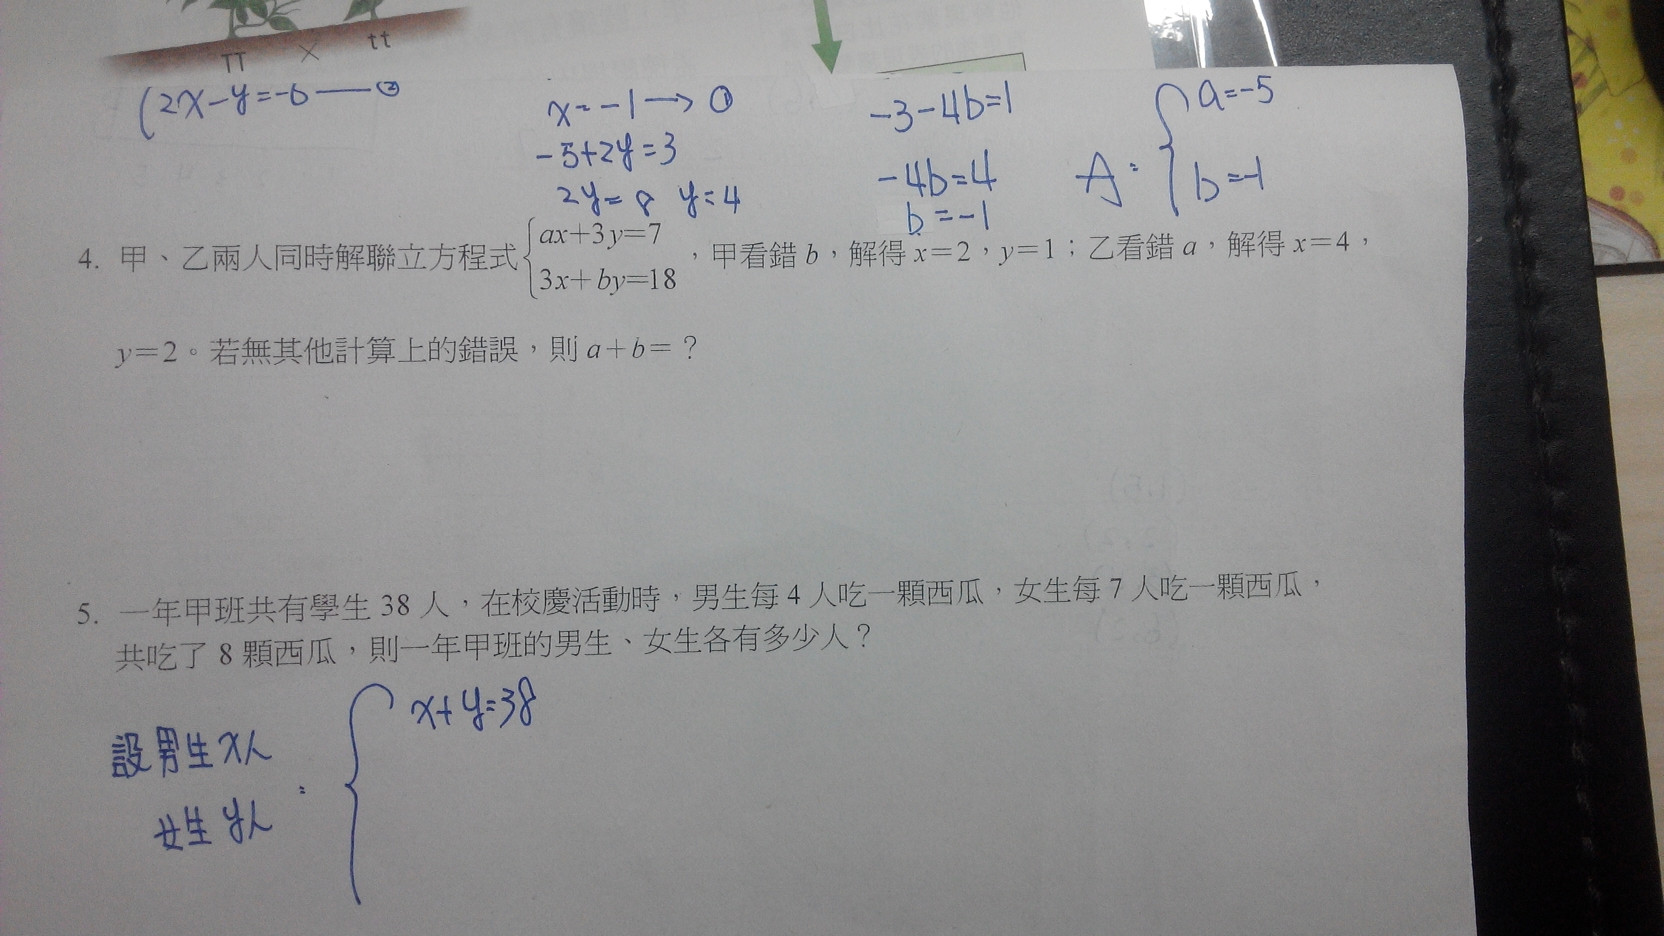 TT × tt
2x-y=-6 — ②
x=-1 → ①
-5+2y=3
2y=8 y=4
-3-4b=1
-4b=4
b=-1
A: { a=-5
b=-1
4. 甲、乙兩人同時解聯立方程式{ ax+3y=7
3x+by=18 ,甲看錯 b,解得 x=2,y=1;乙看錯 a,解得 x=4,
y=2。若無其他計算上的錯誤,則 a+b=?
5. 一年甲班共有學生 38 人,在校慶活動時,男生每 4 人吃一顆西瓜,女生每 7 人吃一顆西瓜,
共吃了 8 顆西瓜,則一年甲班的男生、女生各有多少人?
設男生 x人
女生 y人 : { x+y=38